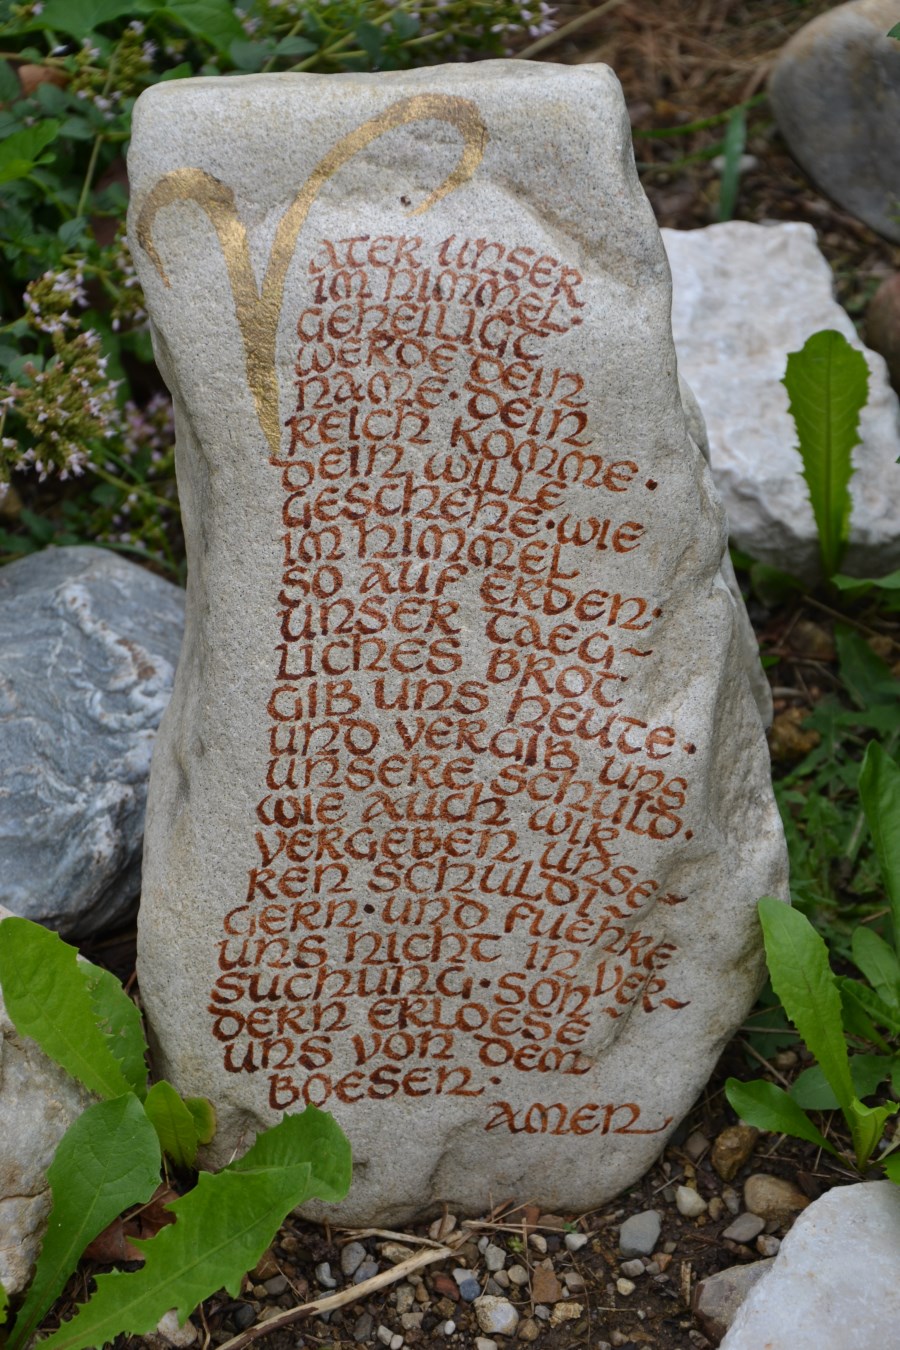 VATER UNSER
IM HIMMEL·
GEHEILIGT
WERDE DEIN
NAME·DEIN
REICH KOMME·
DEIN WILLE
GESCHEHE·WIE
IM HIMMEL
SO AUF ERDEN·
UNSER TAEG~
LICHES BROT
GIB UNS HEUTE·
UND VERGIB UNS
UNSERE SCHULD·
WIE AUCH WIR
VERGEBEN UNSE~
REN SCHULDI~
GERN·UND FUEHRE
UNS NICHT IN VER~
SUCHUNG·SON~
DERN ERLOESE
UNS VON DEM
BOESEN·
AMEN